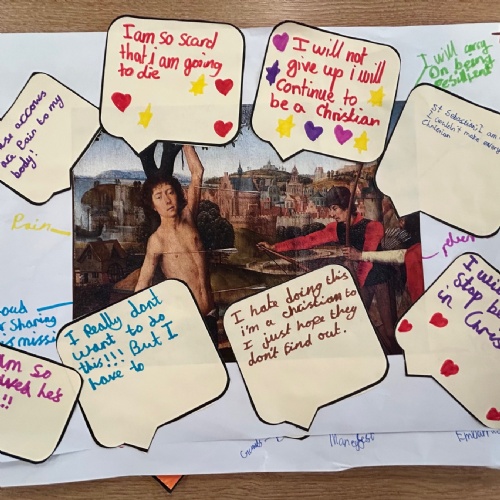 I am so scard
that i am going
to die
I will not
give up i will
Continue to
be a Christian
I will carry
On being
resilient
accross
Pain to my
body!
St Sebastian; I am
I couldn't make
Christian
Pain
I really don't
want to do
this!!! But I
have to
I hate doing this
i'm a christian to
I just hope they
don't find out.
I
Stop
in
sharing
So
he's
!!